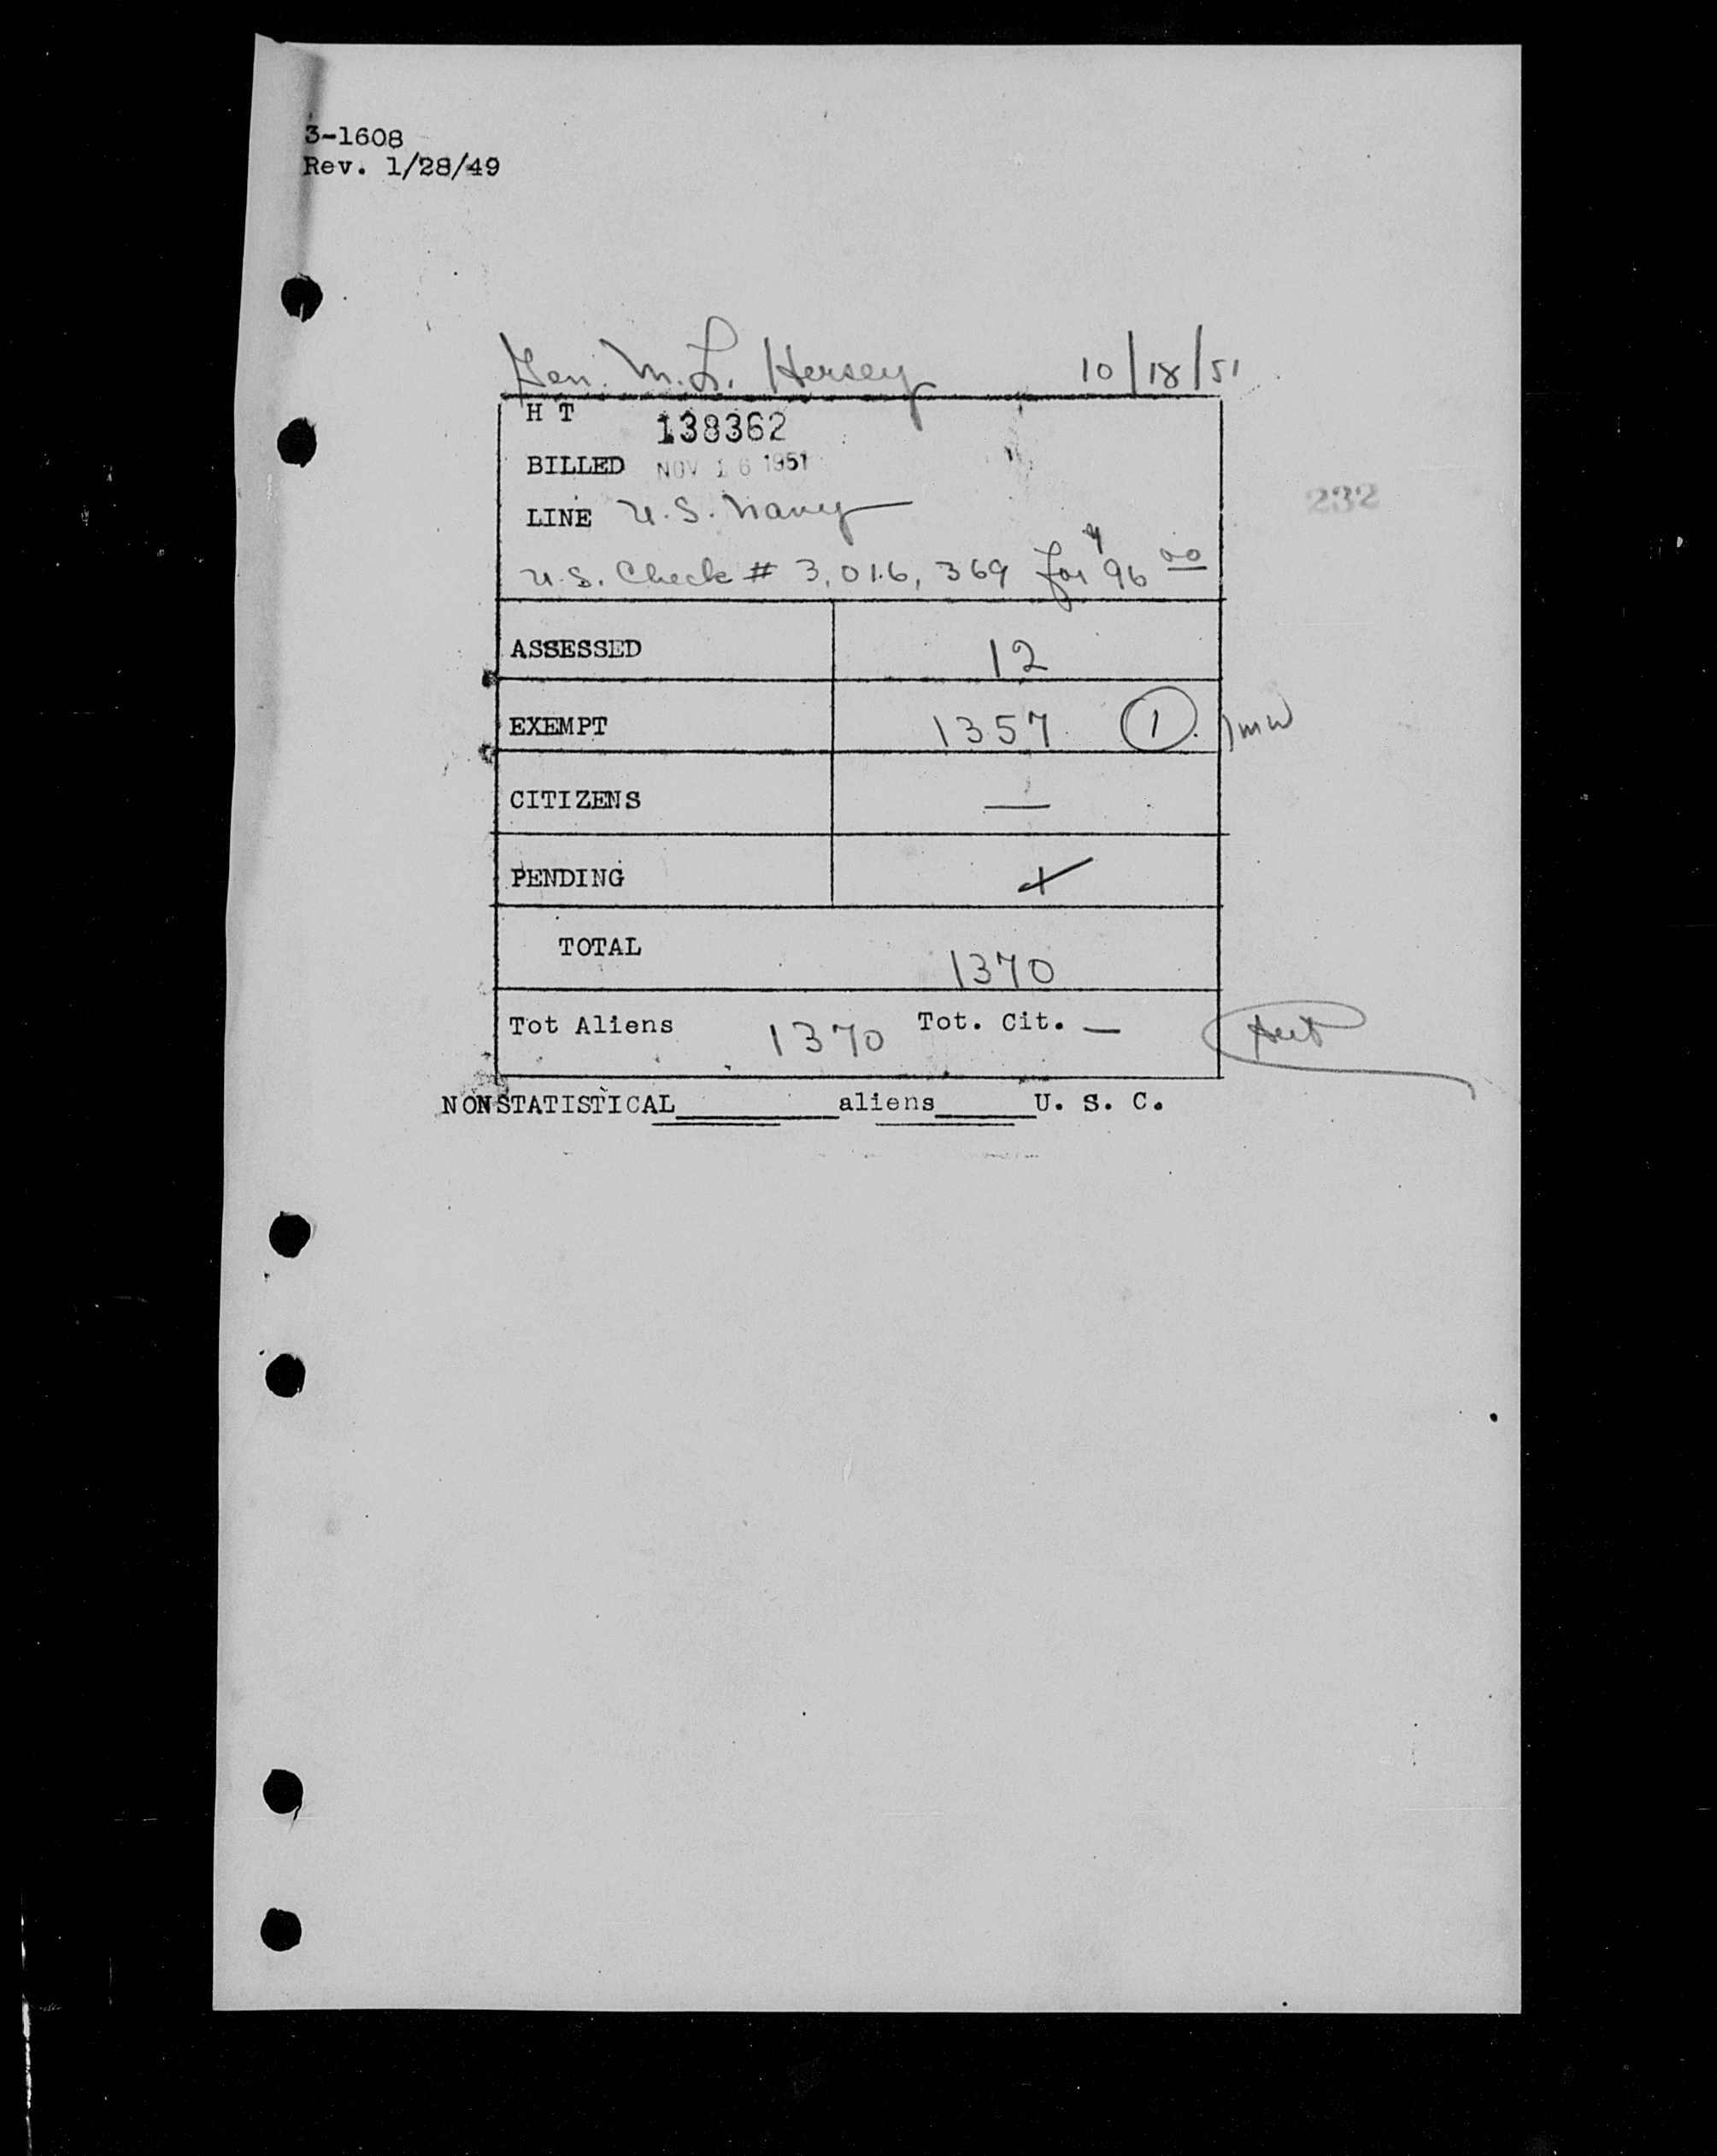 3-1608
Rev. 1/28/49
Gen. M. L. Hersey 10/18/51
H T 138362
BILLED NOV 16 1951
LINE U.S. Navy
232
U.S. Check # 3,016,369 for $96 00
ASSESSED 12
EXEMPT 1357 1
CITIZENS —
PENDING
TOTAL 1370
Tot Aliens 1370 Tot. Cit. —
NONSTATISTICAL________aliens_____U. S. C.